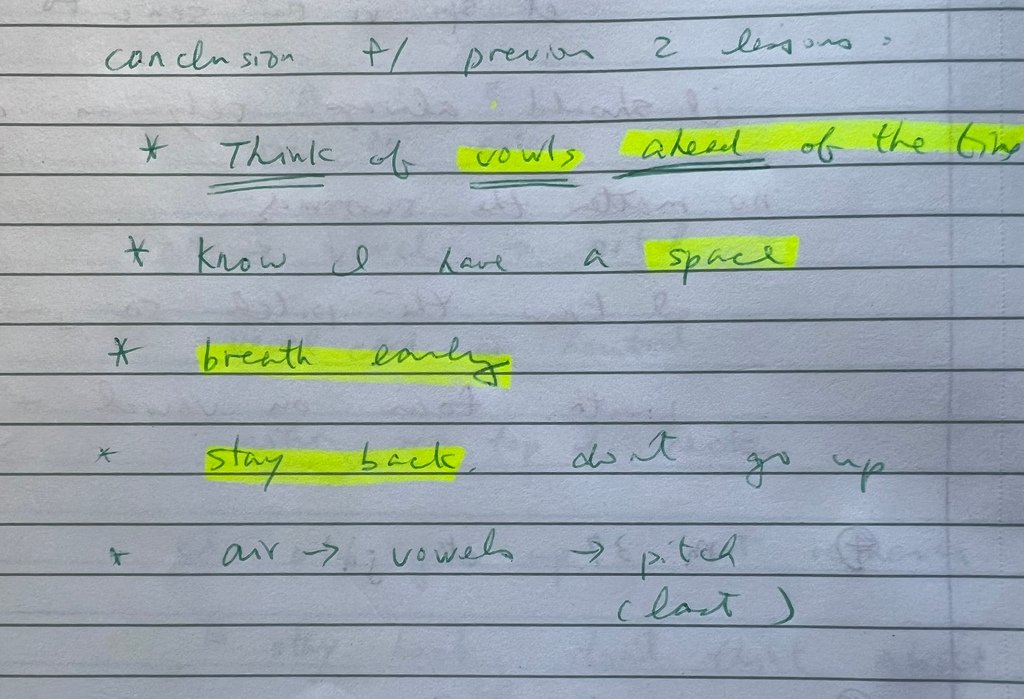 conclusion f/ previous 2 lessons:
* Think of vowls ahead of the time
* know I have a space
* breath early
* stay back, don't go up
* air → vowels → pitch
(last)